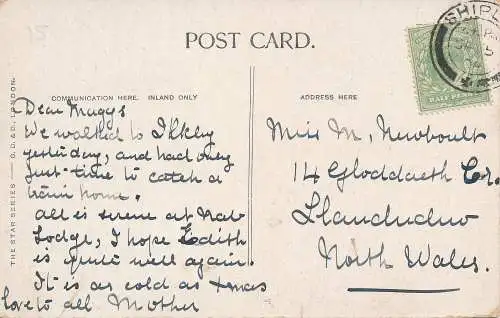 15
POST CARD.
COMMUNICATION HERE. INLAND ONLY
ADDRESS HERE
THE STAR SERIES — G. D. & D., LONDON.
Dear Muggs
We walked to Ilkley
yesterday, and had only
just time to catch a
train home.
All is serene at Nab
Lodge, I hope Edith
is quite well again.
It is as cold as Xmas
love to all Mother
Miss M. Newboult
14 Gloddaeth Cr.
Llandudno
North Wales.
SHIPL
HALF